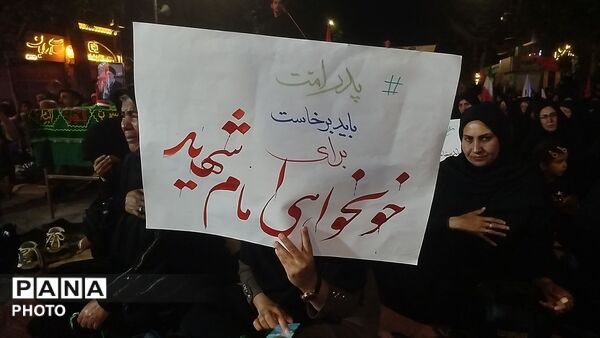 #پدر امّت
باید برخاست
برای
خونخواهی امام شهید
PANA
PHOTO